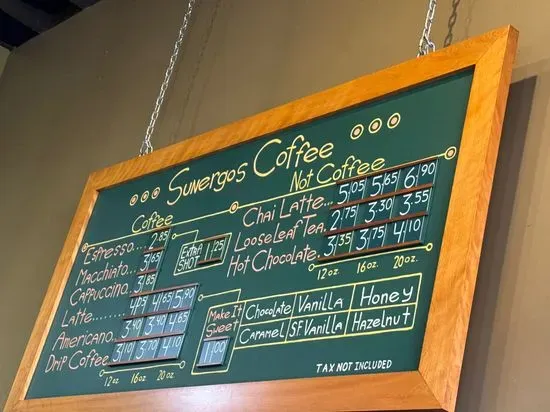 Sunergos Coffee
Coffee
Espresso... 2.85
Macchiato... 3.65
Cappuccino. 3.65
Latte... 4.05 4.65 5.90
Americano 3.40 3.65 4.65
Drip Coffee 3.10 3.40 3.65
12 oz 16 oz 20 oz
EXTRA SHOT 1.25
Not Coffee
Chai Latte... 5.05 5.65 6.90
Loose Leaf Tea. 2.75 3.30 3.55
Hot Chocolate. 3.35 3.75 4.10
12 oz 16 oz 20 oz
Make It
Sweet
1.00
Chocolate Vanilla Honey
Caramel SF Vanilla Hazelnut
TAX NOT INCLUDED